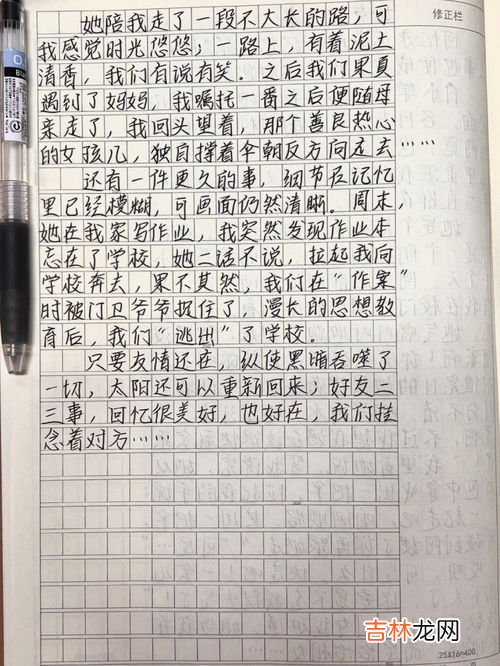 修正栏
她陪我走了一段不大长的路，可
我感觉时光悠悠，一路上，有着泥土
清香，我们有说有笑。之后我们果真
遇到了妈妈，我嘱托一番之后便随母
亲走了，我回头望着，那个善良热心
的女孩儿，独自撑着伞朝反方向走去……
还有一件更久的事，细节在记忆
里已经模糊，可画面仍然清晰。周末，
她在我家写作业，我突然发现作业本
忘在了学校，她二话不说，拉起我向
学校奔去，果不其然，我们在“作案”
时被门卫爷爷捉住了，漫长的思想教
育后，我们“逃出”了学校。
只要友情还在，纵使黑暗吞噬了
一切，太阳还可以重新回来；好友二
三事，回忆很美好，也好在，我们挂
念着对方……
25X16=400
吉林龙网